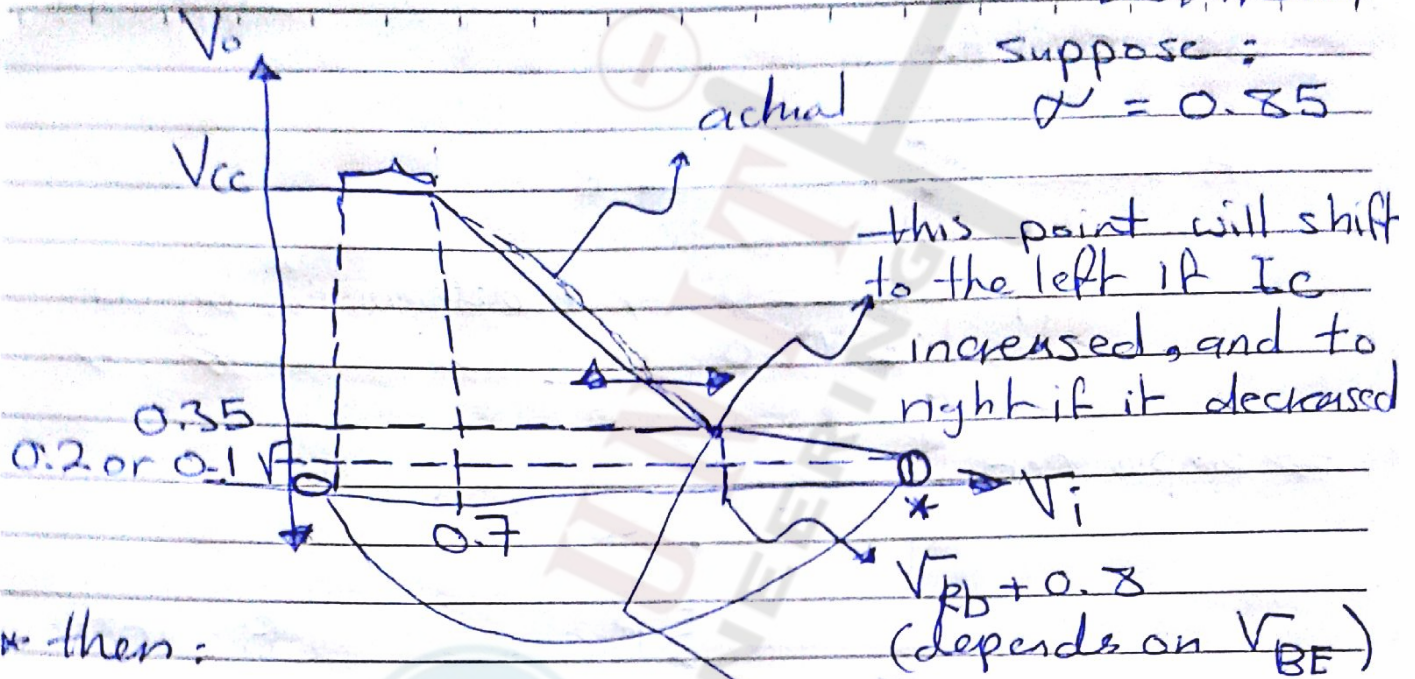 V₀
suppose:
σ = 0.85
actual
Vcc
this point will shift
to the left if Ic
increased, and to
right if it decreased
0.35
0.2 or 0.1 V
Vi
0.7
V_Rb + 0.8
(depends on V_BE)
* then:
UMIT
NEERING